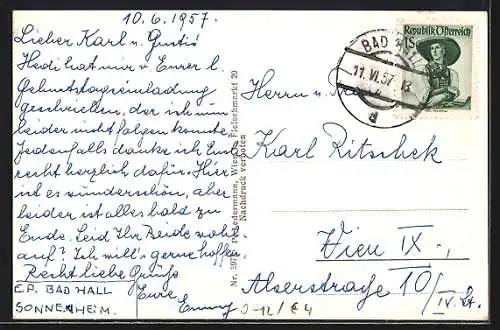 10.6.1957.
Lieber Karl u. Gusti!
Hedi hat mir v. Eurer l.
Geburtstagseinladung
geschrieben, der ich nun
leider nicht folgen konnte
Jedenfalls danke ich Euch
recht herzlich dafür. Hier
ist es wunderschön, aber
leider ist alles bald zu
Ende. Seid Ihr Beide wohl-
auf? Ich will's gerne hoffen.
Recht liebe Grüße
Eure
Emmy
E.P. BAD HALL
SONNENHEIM.
Nachdruck verboten
Republik Österreich
1S
BAD HALL
11. VI. 57
Herrn u.
Karl Ritschek
Wien IX.,
Alserstraße 10/
IV. St.